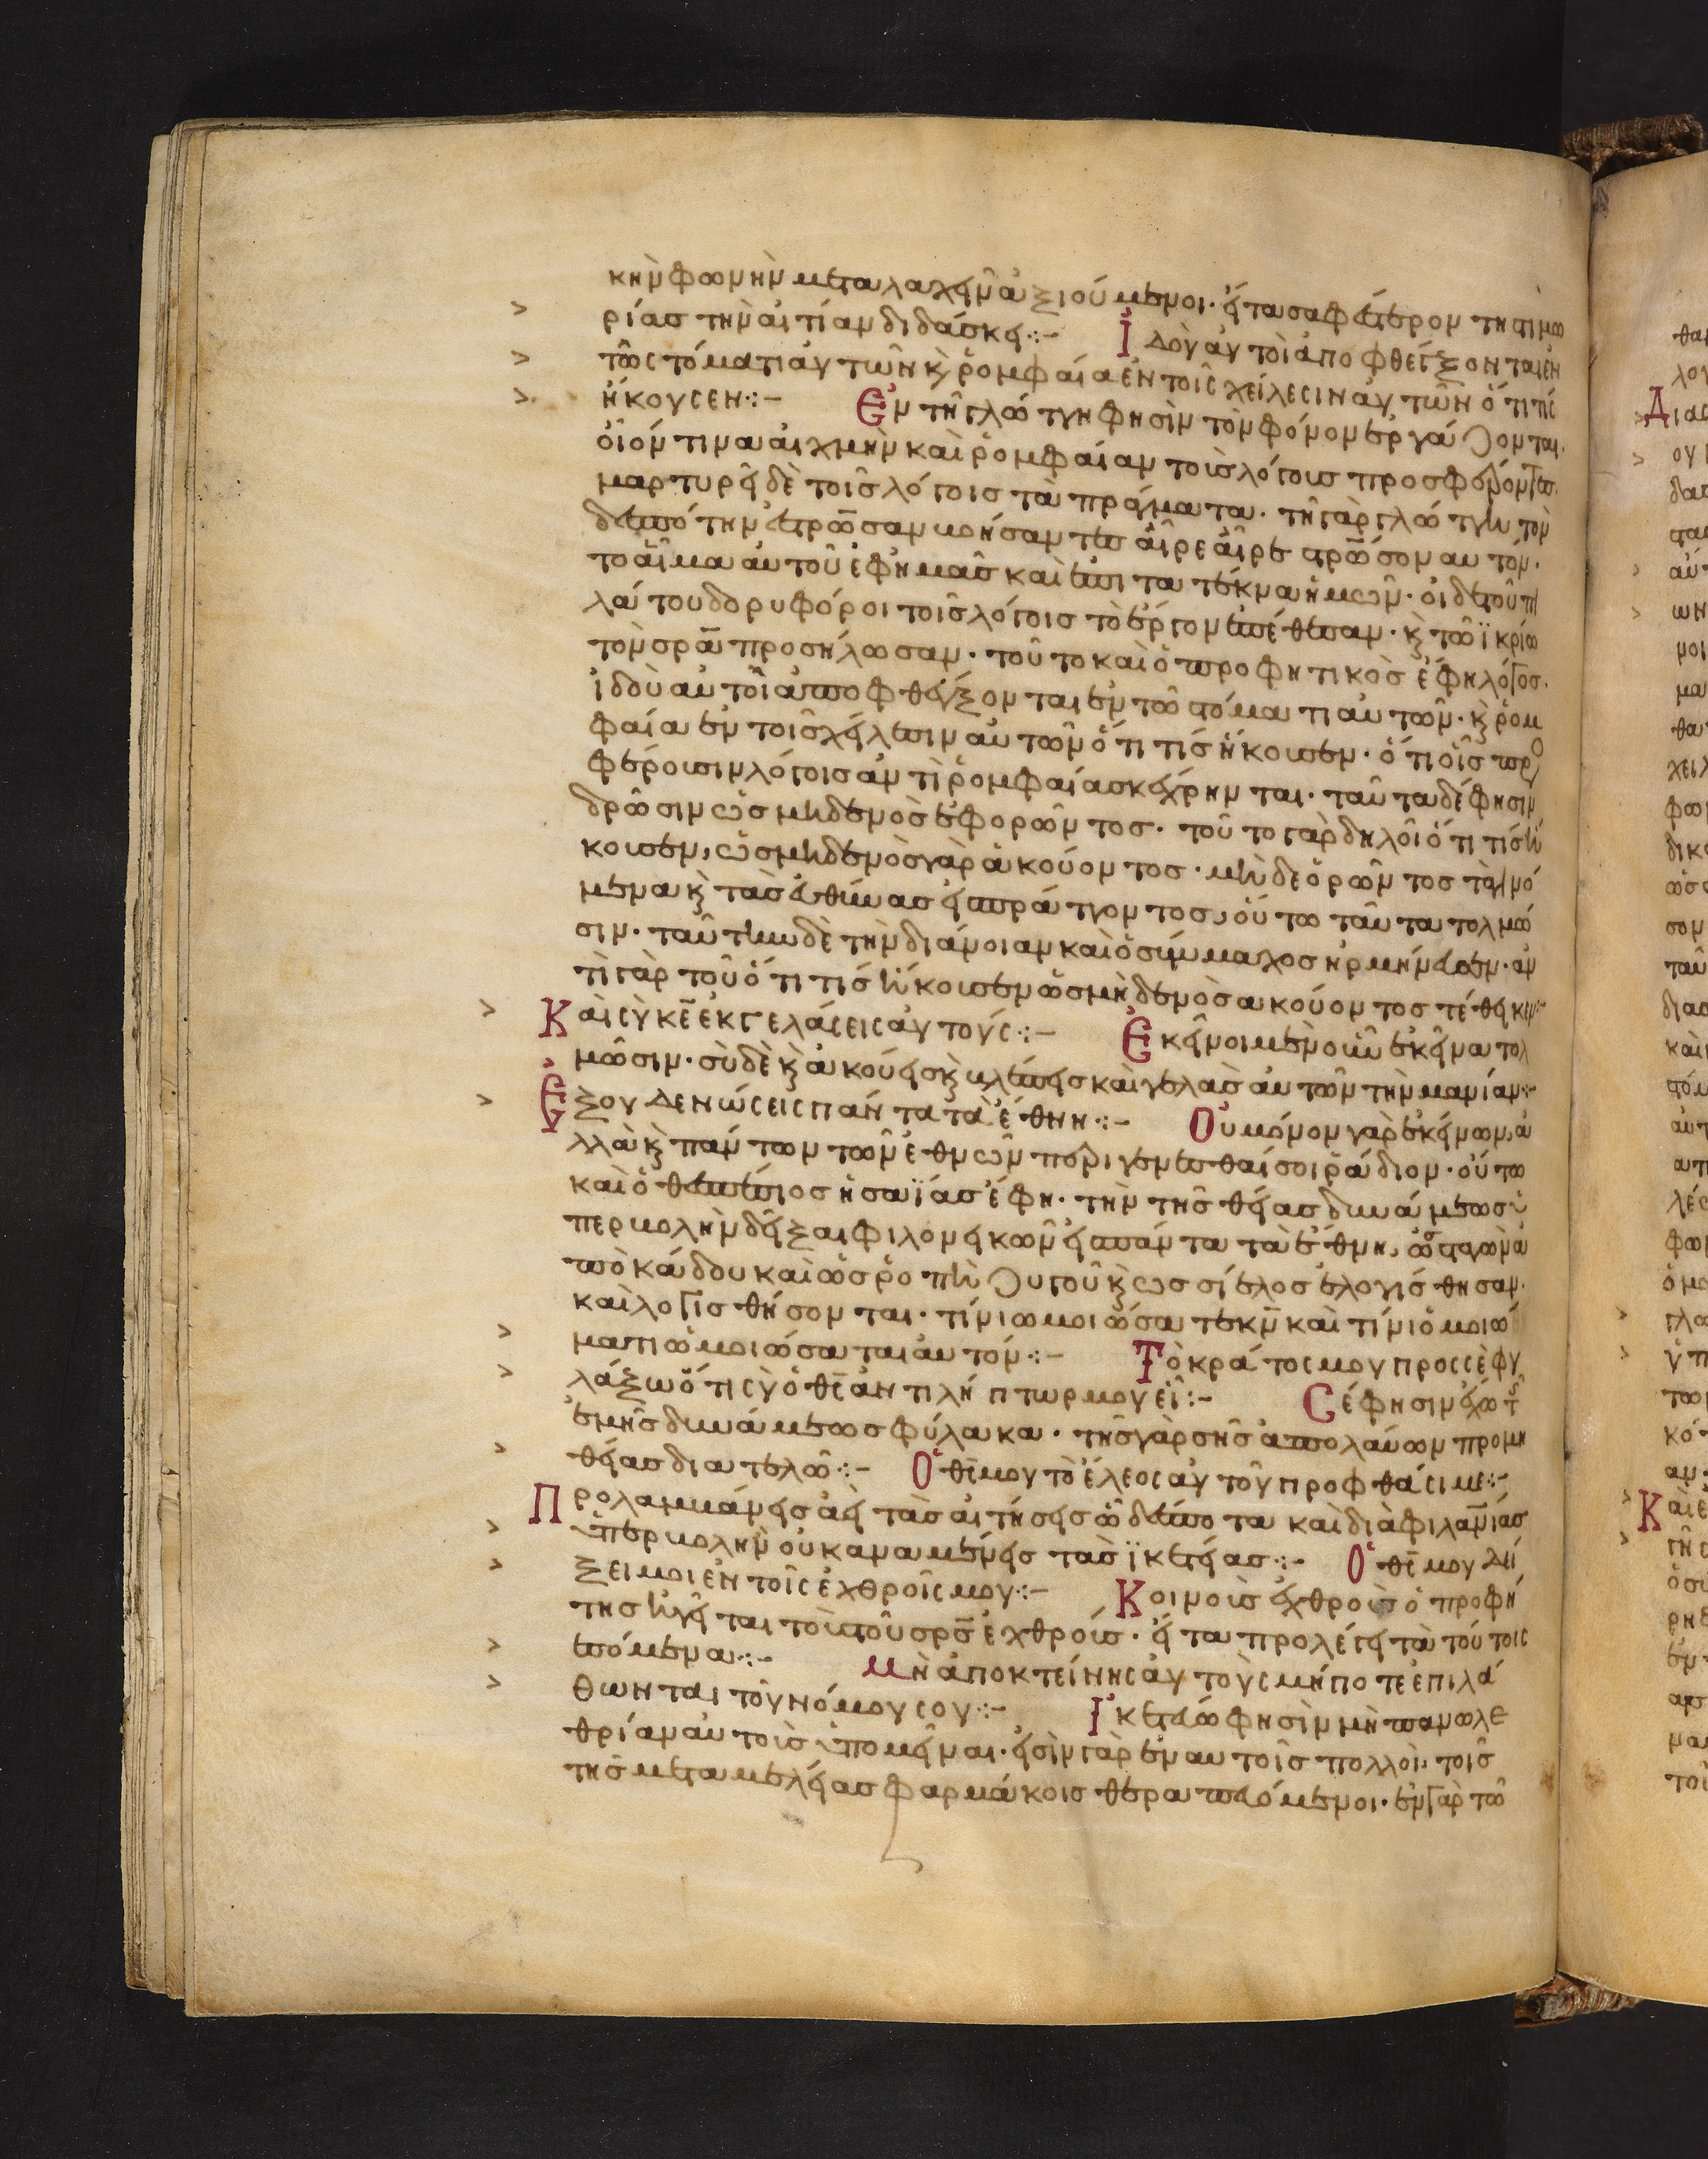 κὴν φωνὴν μεταλαχεῖν ἀξιούμενοι. εἶτα σαφέστερον τῆς τιμω
ρίας τὴν αἰτίαν διδάσκει:- Ἰδοὺ αὐτοὶ ἀποφθέγξονται ἐν
τῶ στόματι αὐτῶν κ ῥομφαία ἐν τοῖς χείλεσιν αὐτῶν ὅτι τίς
ἤκουσεν:- Ἐν τῇ γλώττῃ φησὶν τὸν φόνον ἐργάζονται.
οἷόν τινα αἰχμὴν καὶ ῥομφαίαν τοῖς λόγοις προσφέροντες.
μαρτυρεῖ δὲ τοῖς λόγοις τὰ πράγματα. τῇ γὰρ γλώττῃ τὸν
δεσπότην ἐσταύρωσαν βοήσαντες ἆρε ἆρε σταύρωσον αὐτόν.
τὸ αἷμα αὐτοῦ ἐφ ημᾶς καὶ ἐπὶ τα τέκνα ἡμῶν. οἱ δὲ τοῦ πι
λάτου δορυφόροι τοῖς λόγοις τὸ ἔργον ἐπέθεσαν. κ τῶ ϊκρίω
τὸν σρα προσήλωσαν. τοῦτο καὶ ὁ προφητικὸς ἔφη λόγος.
ἰδοὺ αὐτοὶ ἀποφθέγξονται ἐν τῶ στόματι αὐτῶν. κ ῥομ
φαία ἐν τοῖς χείλεσιν αὐτῶν ὅτι τίς ἤκουσεν. ὅτι οἷς προ
φέρουσιν λόγοις ἀντὶ ῥομφαίας κέχρηνται. ταῦτα δέ φησιν
δρῶσιν ὡς μηδενὸς ἐφορῶντος. τοῦτο γὰρ δηλοῖ ὅτι τίς ἤ
κουσεν, ὡς μηδενὸς γὰρ ἀκούοντος. μηδὲ ὁρῶντος τὰ γινό
μενα κ τὰς εὐθύνας εἰσπράττοντος, οὕτω ταῦτα τολμῶ
σιν. ταύτην δὲ τὴν διάνοιαν καὶ ὁ σύμμαχος ἡρμήνευσεν. ἀν
τὶ γὰρ τοῦ ὅτι τίς ἤκουσεν ὡς μηδενὸς ἀκούοντος τέθεικεν:-
Καὶ σὺ κε ἐκγελάσεις αὐτούς:- Ἐκεῖνοι μὲν οὖν ἐκεῖνα τολ
μῶσιν. σὺ δὲ κ ἀκούεις κ βλέπεις καὶ γελᾶς αὐτῶν τὴν μανίαν:-
Ἐξουδενώσεις πάντα τὰ ἔθνη:- Οὐ μόνον γὰρ ἐκείνων, ἀ
λλὰ κ πάντων τῶν ἐθνῶν περιγενέσθαι σοι ῥάδιον. οὕτω
καὶ ὁ θεσπέσιος ἡσαΐας ἔφη. τὴν τῆς θείας δυνάμεως ὑ
περβολὴν δεῖξαι φιλονεικῶν εἰ πάντα τὰ ἔθνη, ὡς σταγὼν ἀ
πὸ κάδου καὶ ὡς ῥοπὴ ζυγοῦ κ ὡς σίελος ἐλογίσθησαν.
καὶ λογισθήσονται. τίνι ὡμοιώσατε κν καὶ τίνι ὁμοιώ
ματι ὡμοιώσατε αὐτόν:- Τὸ κράτος μου πρὸς σὲ φυ
λάξω ὅτι σὺ ὁ θς ἀντιλήπτωρ μου εἶ:- Σέ φησιν ἔχω τῆς
ἐμῆς δυνάμεως φύλακα. τῆς γὰρ σῆς ἀπολαύων προμη
θείας διατελῶ:- Ὁ θς μου τὸ ἔλεος αὐτοῦ προφθάσει με:-
Προλαμβάνεις ἀεὶ τὰς αἰτήσεις ὦ δέσποτα καὶ διὰ φιλανίας
ὑπερβολὴν οὐκ ἀναμένεις τὰς ϊκετείας:- Ὁ θς μου δεί
ξει μοι ἐν τοῖς ἐχθροῖς μου:- Κοινοὺς ἐχθροὺς ὁ προφή
της ἡγεῖται τοὺς τοῦ σρς ἐχθρούς. εἶτα προλέγει τὰ τούτοις
ἑπόμενα:- Μὴ ἀποκτείνῃς αὐτοὺς μήποτε ἐπιλά
θωνται τοῦ νόμου σου:- Ἱκετεύω φησὶν μὴ πανωλε
θρίαν αὐτοὺς ὑπομεῖναι. εἰσὶν γὰρ ἐν αὐτοῖς πολλοὶ τοῖς
τῆς μεταμελείας φαρμάκοις θεραπευόμενοι. ἐν γὰρ τῶ